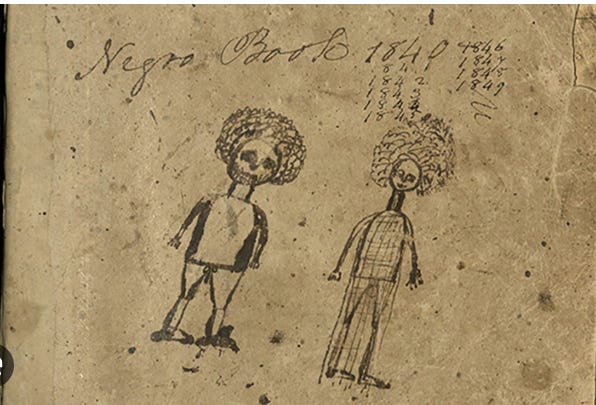 Negro Book 1840
1841
1842
1843
1844
1845
1846
1847
1848
1849